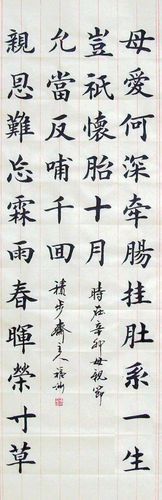 母愛何深牽腸挂肚系一生
豈祇懷胎十月
時在辛卯母親節
允當反哺千回
積步齋主人
親恩難忘霖雨春暉榮寸草